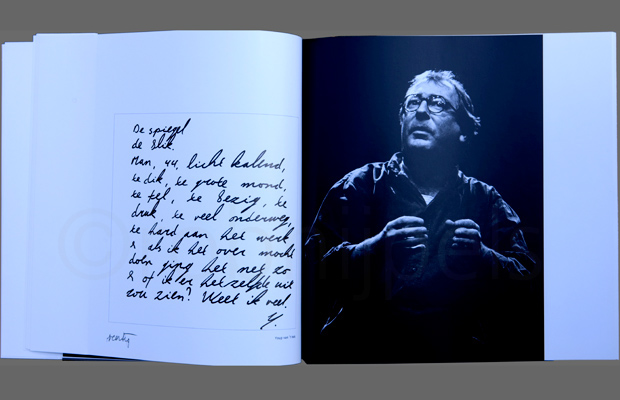 De spiegel
de blik.
Man, 44, licht kalend,
te dik, te grote mond,
te fel, te bezig, te
druk, te veel onderweg,
te hard aan het werk
& als ik het over mocht
doen ging het net zo
& of ik er hetzelfde uit
zou zien? Weet ik veel.
Y.